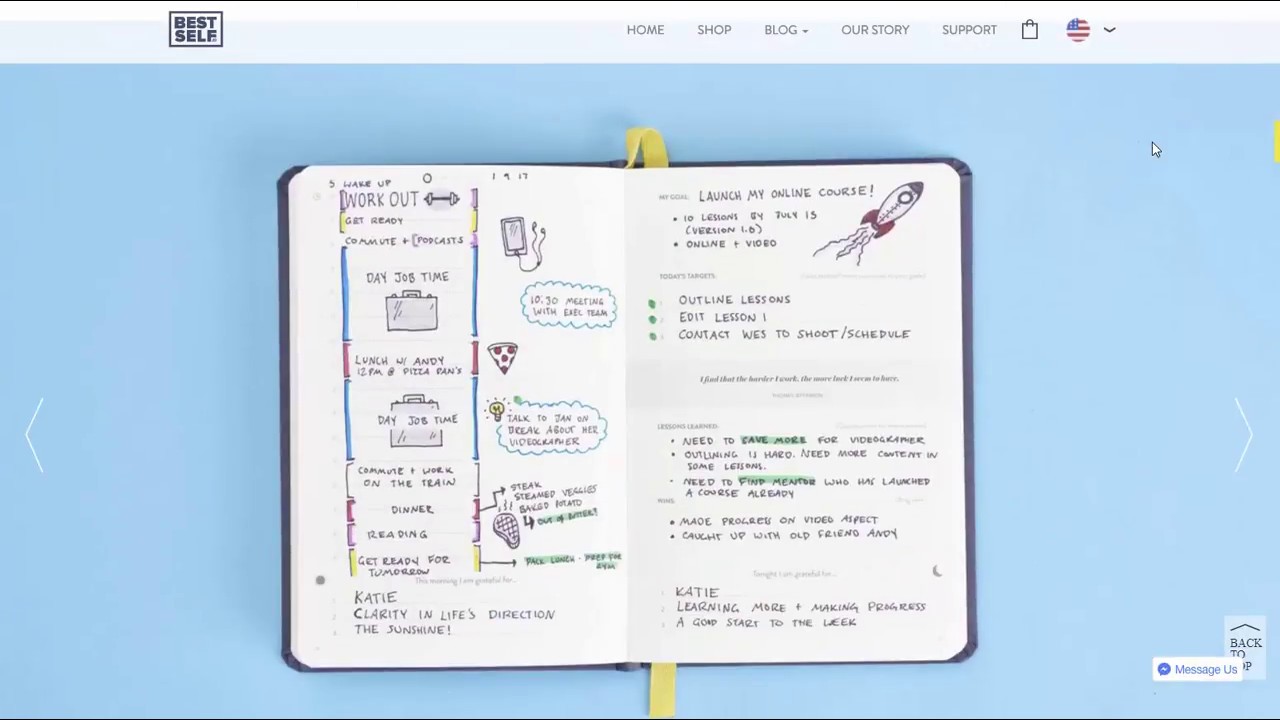 BEST
SELF
HOME SHOP BLOG OUR STORY SUPPORT
5 WAKE UP
1 9 17
WORK OUT
GET READY
COMMUTE + PODCASTS
DAY JOB TIME
10:30 MEETING
WITH EXEC TEAM
LUNCH W/ ANDY
12PM @ PIZZA DAN'S
DAY JOB TIME
TALK TO JAN ON
BREAK ABOUT HER
VIDEOGRAPHER
COMMUTE + WORK
ON THE TRAIN
DINNER
STEAK
STEAMED VEGGIES
BAKED POTATO
OUT OF BUTTER?
READING
GET READY FOR
TOMORROW
PACK LUNCH - PREP FOR
GYM
This morning I am grateful for...
KATIE
CLARITY IN LIFE'S DIRECTION
THE SUNSHINE!
MY GOAL: LAUNCH MY ONLINE COURSE!
• 10 LESSONS BY JULY 15
(VERSION 1.0)
• ONLINE + VIDEO
TODAY'S TARGETS:
1 OUTLINE LESSONS
2 EDIT LESSON 1
3 CONTACT WES TO SHOOT/SCHEDULE
I find that the harder I work, the more luck I seem to have.
THOMAS JEFFERSON
LESSONS LEARNED:
• NEED TO SAVE MORE FOR VIDEOGRAPHER
• OUTLINING IS HARD. NEED MORE CONTENT IN
SOME LESSONS.
• NEED TO FIND MENTOR WHO HAS LAUNCHED
A COURSE ALREADY
WINS:
• MADE PROGRESS ON VIDEO ASPECT
• CAUGHT UP WITH OLD FRIEND ANDY
Tonight I am grateful for...
1 KATIE
2 LEARNING MORE + MAKING PROGRESS
3 A GOOD START TO THE WEEK
BACK
TO
TOP
Message Us